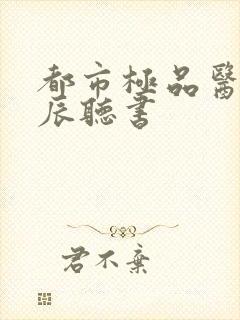 都市極品醫
辰聽書
君不棄